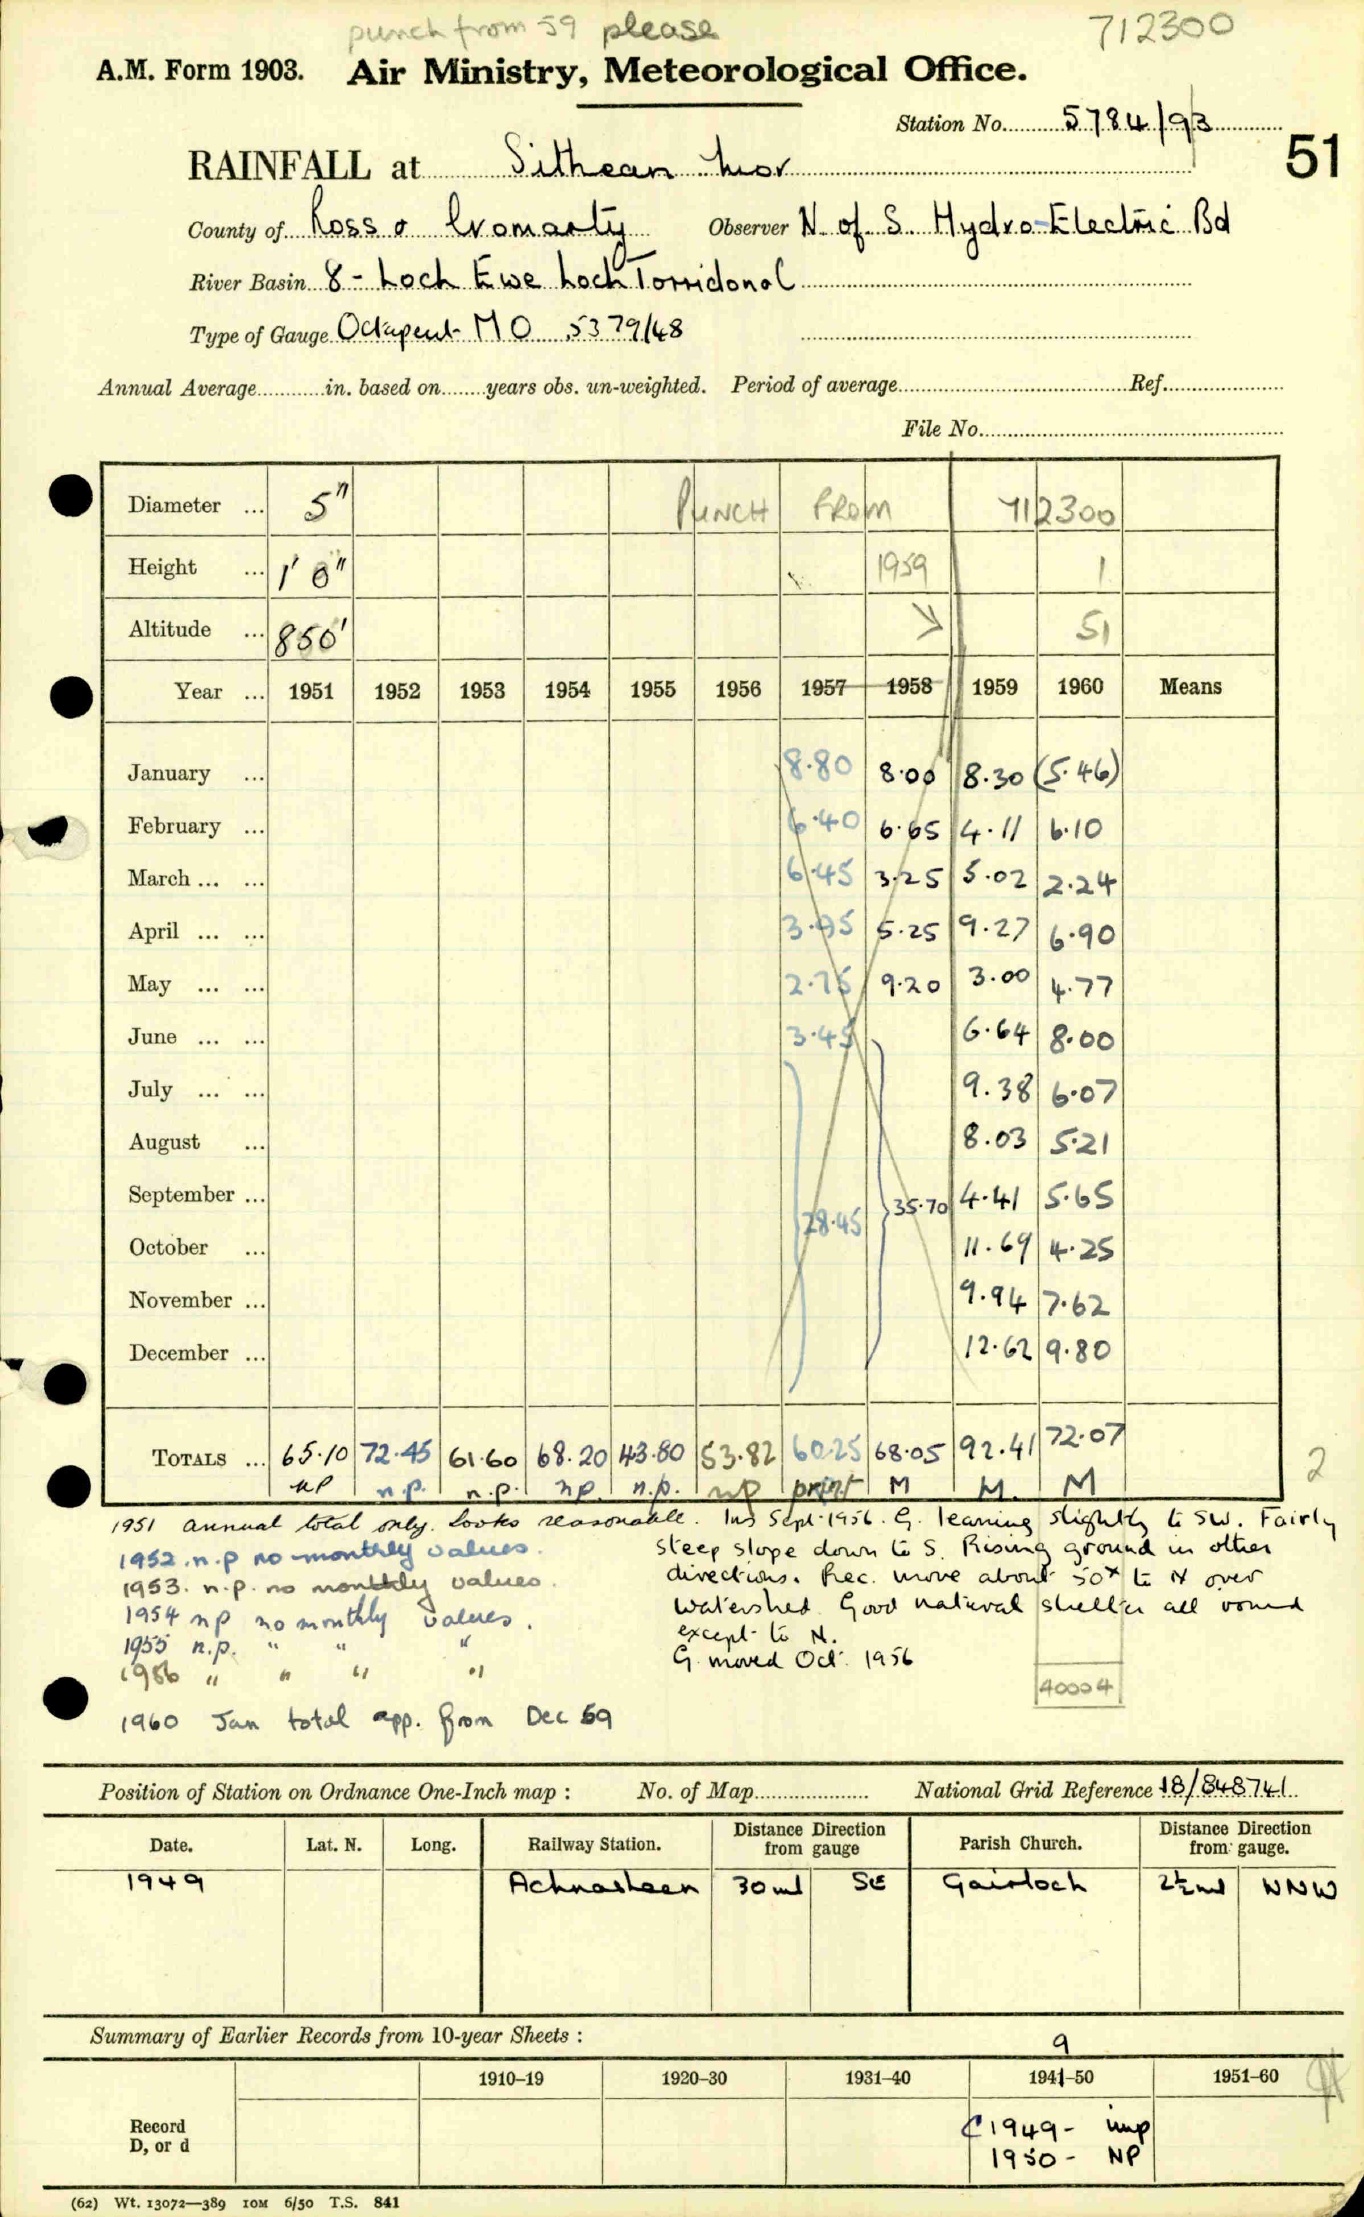 punch from 59 please 712300
A.M. Form 1903. Air Ministry, Meteorological Office.
Station No. 5784/93
51
RAINFALL at Sithean Mor
County of Ross & Cromarty Observer N. of S. Hydro-Electric Bd
River Basin 8 - Loch Ewe Loch Torridonal
Type of Gauge Octapent MO 5379/48
Annual Average in. based on years obs. un-weighted. Period of average Ref.
File No.
Diameter ... 5" PUNCH FROM 712300
Height ... 1' 0" 1959 1
Altitude ... 850' 51
Year ... 1951 1952 1953 1954 1955 1956 1957 1958 1959 1960 Means
January ... 8.80 8.00 8.30 (5.46)
February ... 6.40 6.65 4.11 6.10
March ... ... 6.45 3.25 5.02 2.24
April ... ... 3.95 5.25 9.27 6.90
May ... ... 2.75 9.20 3.00 4.77
June ... ... 3.45 6.64 8.00
July ... ... 9.38 6.07
August ... 8.03 5.21
September ... 28.45 35.70 4.41 5.65
October ... 11.69 4.25
November ... 9.94 7.62
December ... 12.62 9.80
TOTALS ... 65.10 72.45 61.60 68.20 43.80 53.82 60.25 68.05 92.41 72.07
2
NP n.p. n.p. np. n.p. np print M M. M
1951 annual total only. Looks reasonable. Ins Sept. 1956. G. leaning slightly to SW. Fairly
1952. n.p no monthly values. steep slope down to S. Rising ground in other
1953. n.p. no monthly values. directions. Rec. move about 50x to N over
1954 np no monthly values. Watershed. Good natural shelter all round
1955 n.p. " " " except to N.
1956 " " " " G. moved Oct. 1956
40004
1960 Jan total app. from Dec 59
Position of Station on Ordnance One-Inch map : No. of Map National Grid Reference 18/848741
Date. Lat. N. Long. Railway Station. Distance Direction from gauge Parish Church. Distance Direction from gauge.
1949 Achnasheen 30ml SE Gairloch 2½ml WNW
Summary of Earlier Records from 10-year Sheets :
9
1910-19 1920-30 1931-40 1941-50 1951-60
Record
D, or d
C 1949 - imp
1950 - NP
(62) Wt. 13072—389 10M 6/50 T.S. 841